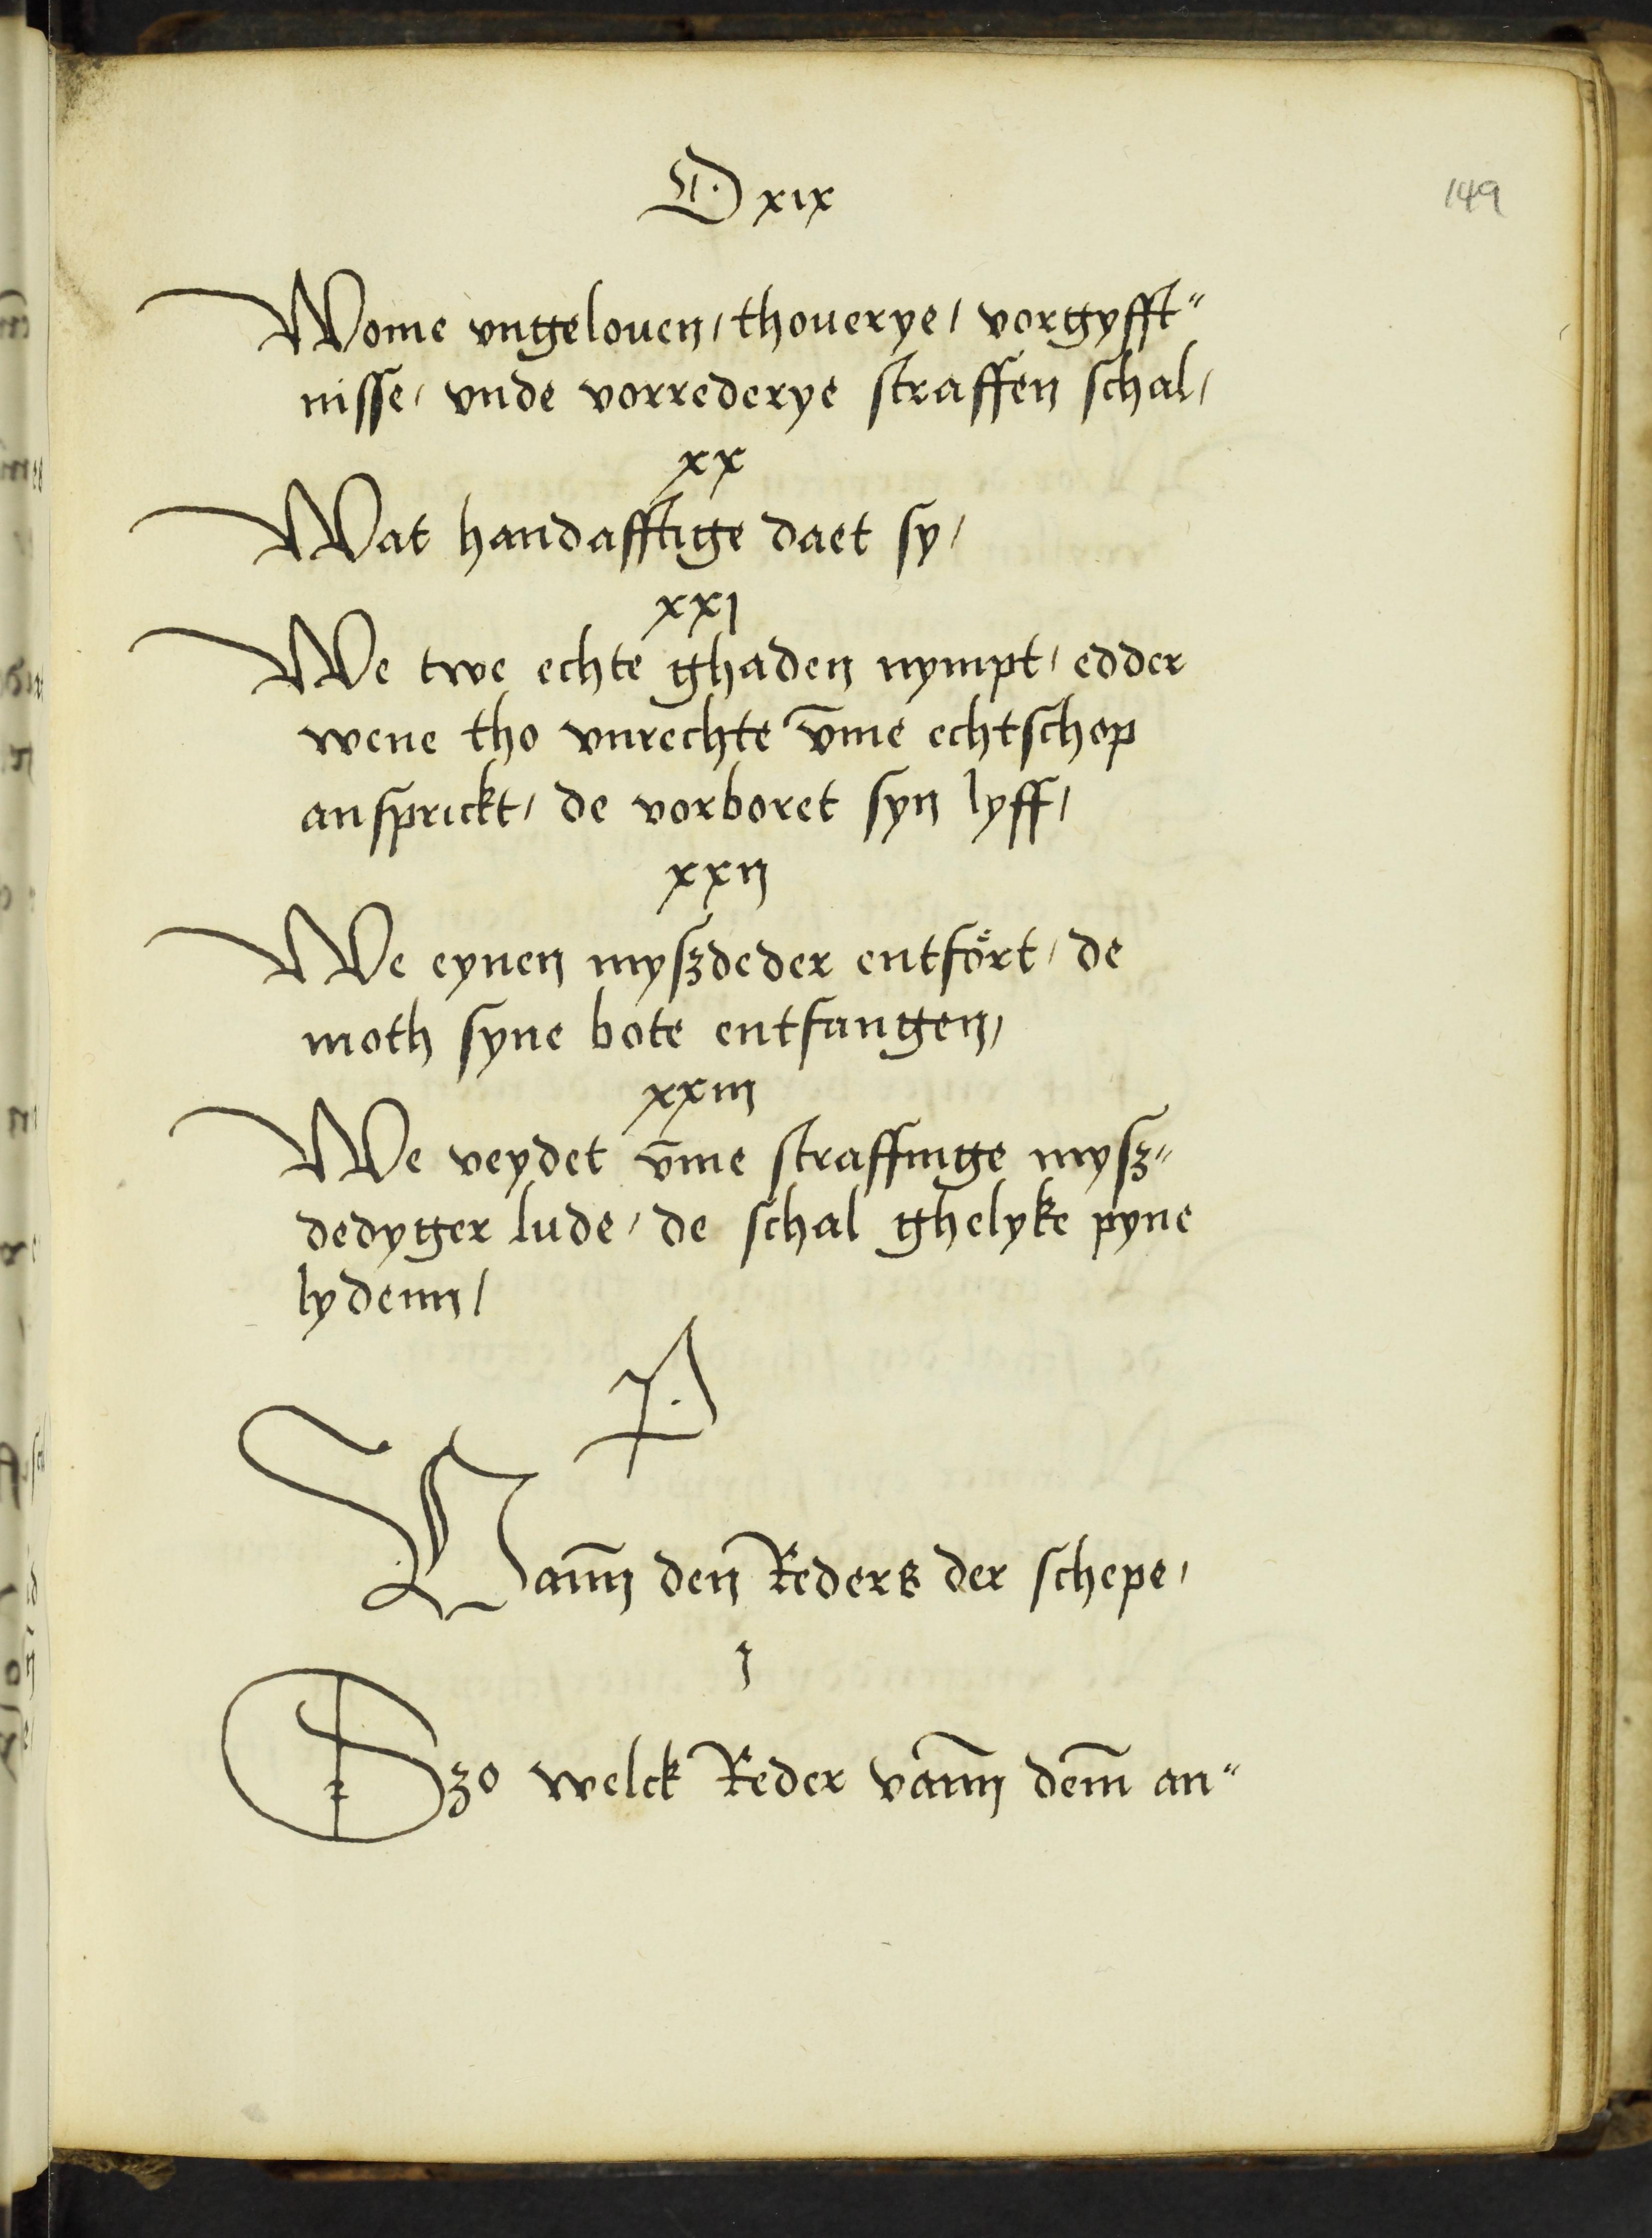 O xix
149
Wome vngelouen / thouerye / vorgyfft"
nisse / vnde vorrederye straffen schal /
xx
Wat handafftige daet sy /
xxj
We twe echte ghaden nympt / edder
wene tho vnrechte v̄me echtschop
ansprickt / de vorboret syn lyff /
xxij
We eynen myszdeder entfört / de
moth syne bote entfangen /
xxiij
We veydet v̄me straffinge mysz"
dedyger lude / de schal ghelyke pyne
lydenn /
P.
Vann̄ den Reders der schepe /
j
Szo welck Reder vann̄ dem̄ an"